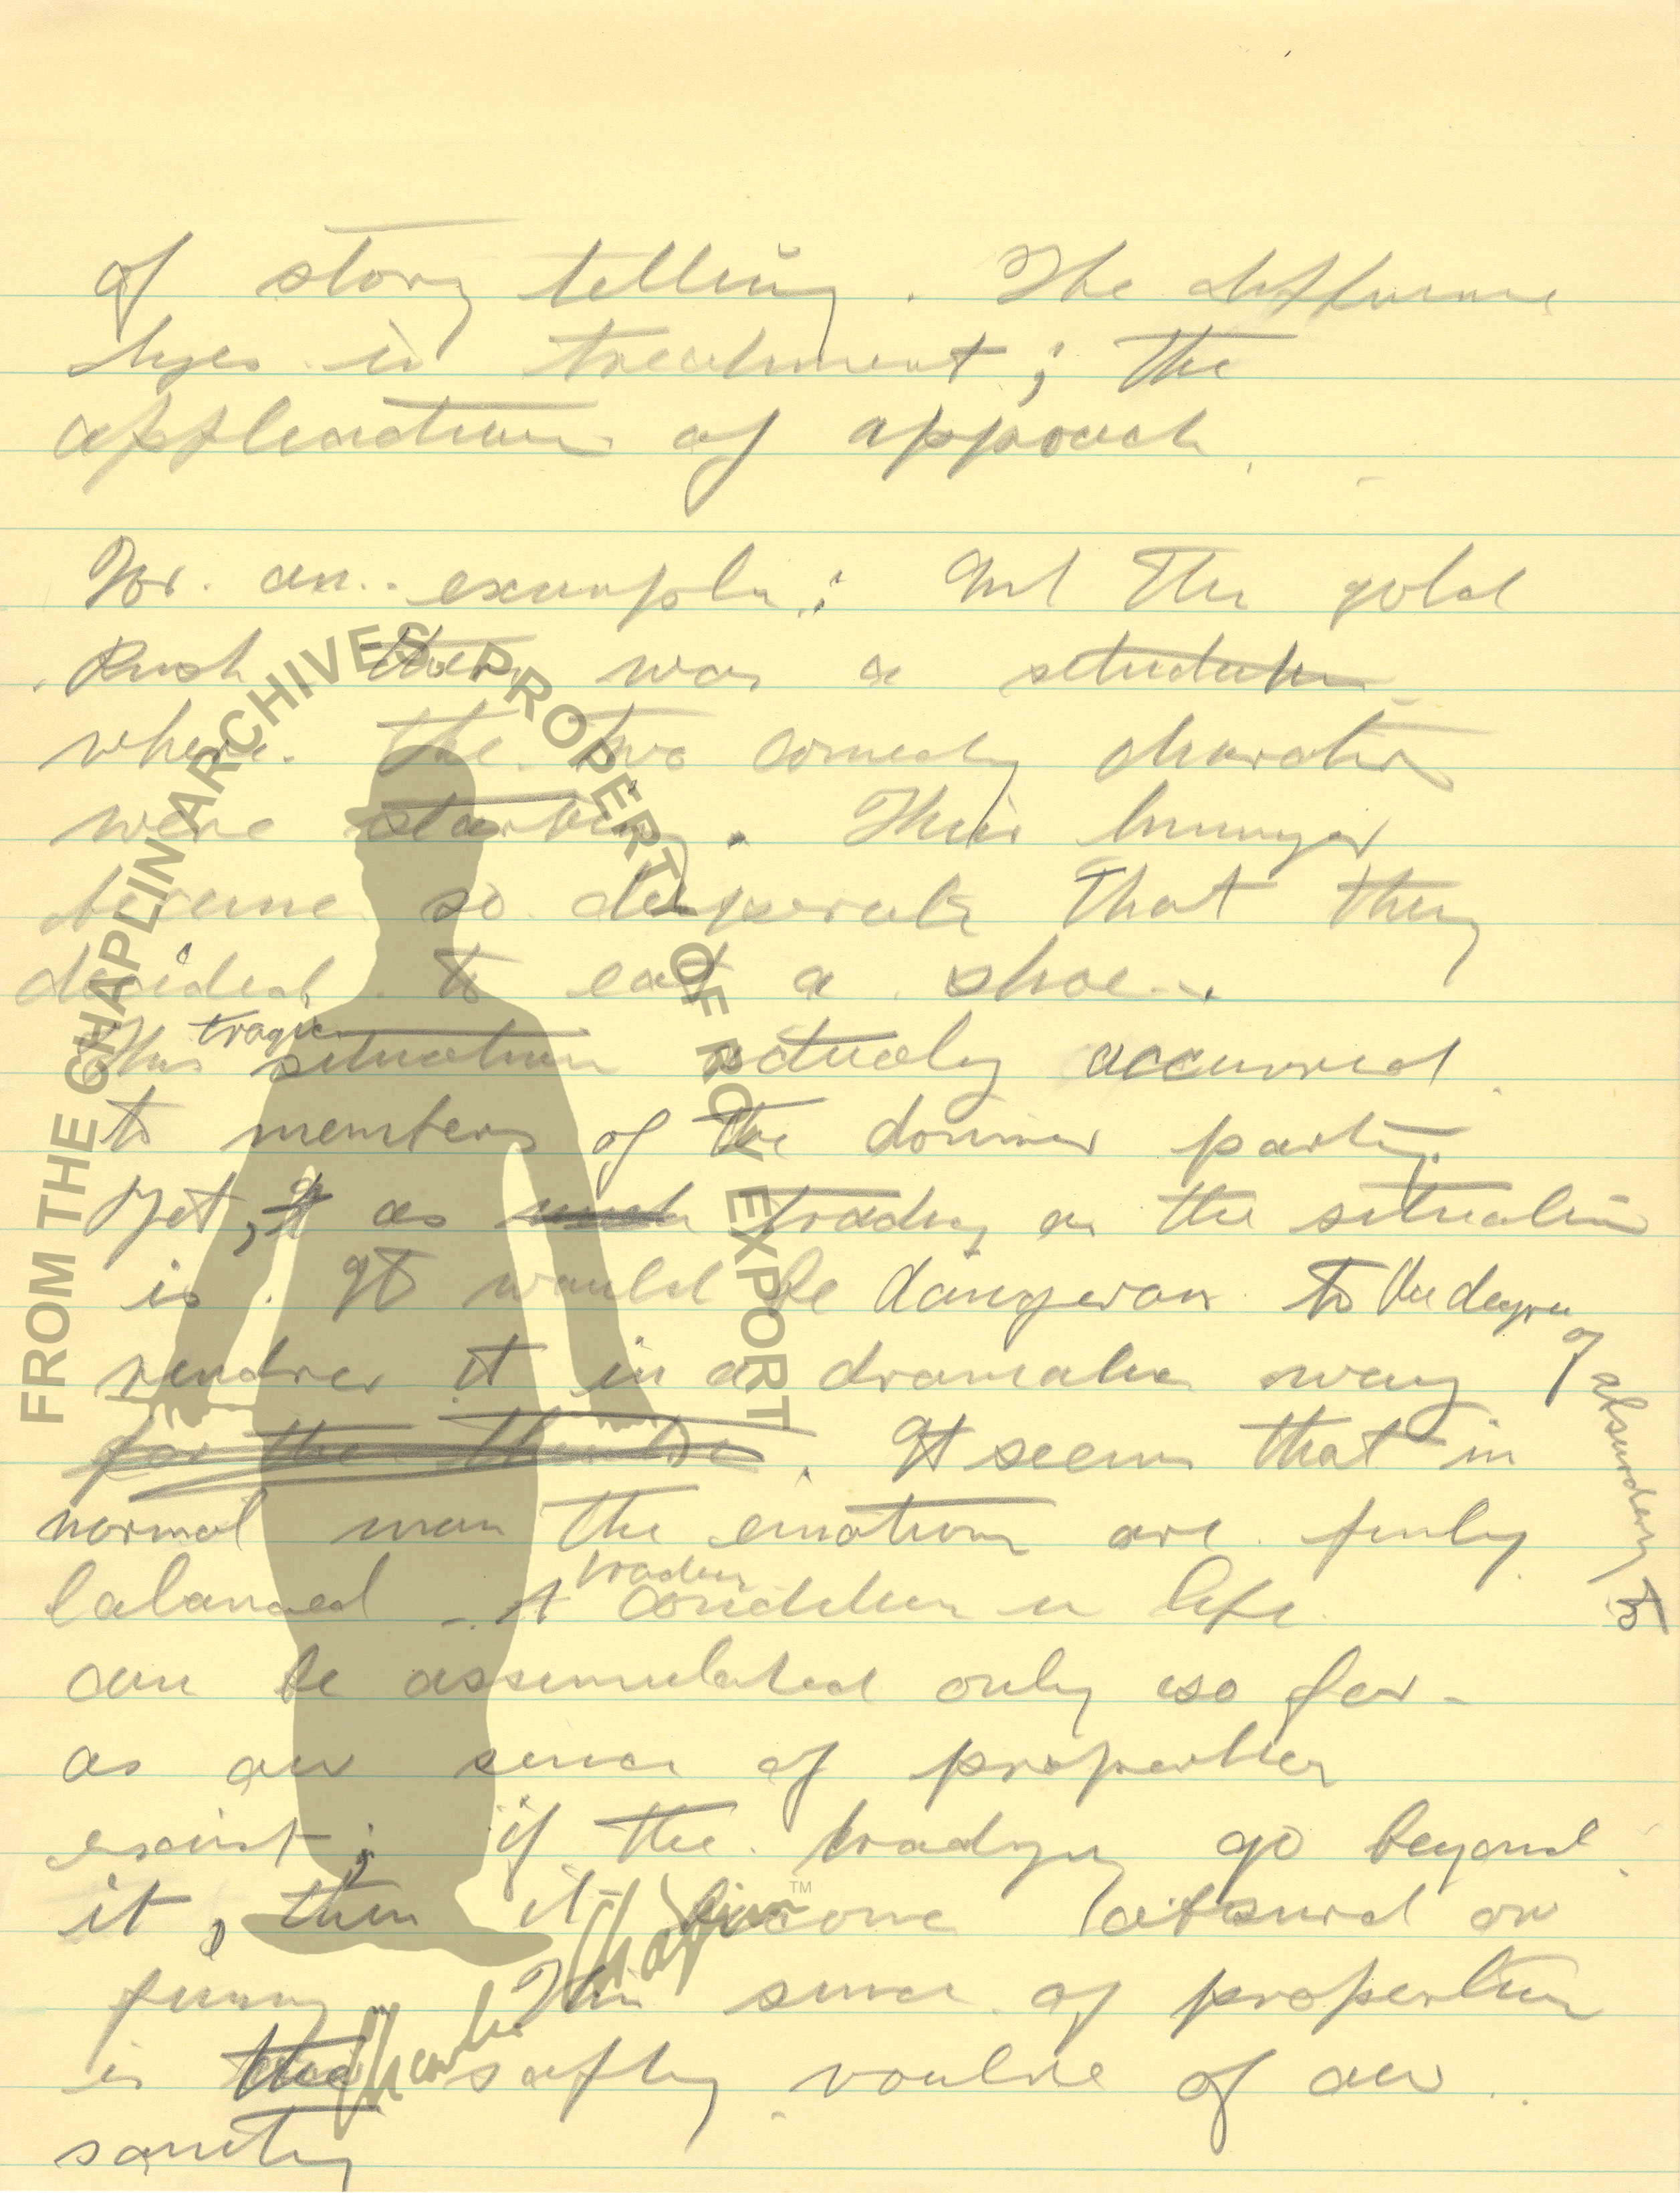 of story telling. The difference
lyes in treatment; the
application of appoach.
For an example: In the gold
Rush there was a situation
where the two comedy characters
were starving. Their hunger
became so desperate that they
decided to eat a shoe.
This tragic situation actualy occurred
to members of the donner party.
Yet, as tradgy as the situation
is. It would be dangerous to the degree of absurdety to
render it in a dramatic way
for the theatre. It seems that in
normal man the emotions are finly
balanced. A tradgy condition in life
can be assimulated only so far
as our sense of propertion
exsist; if the tradgy go beyond
it, then it become absurd or
funny. This sense of propertion
is the safty valve of our
sanity
FROM THE CHAPLIN ARCHIVES PROPERTY OF ROY EXPORT
Charlie Chaplin™